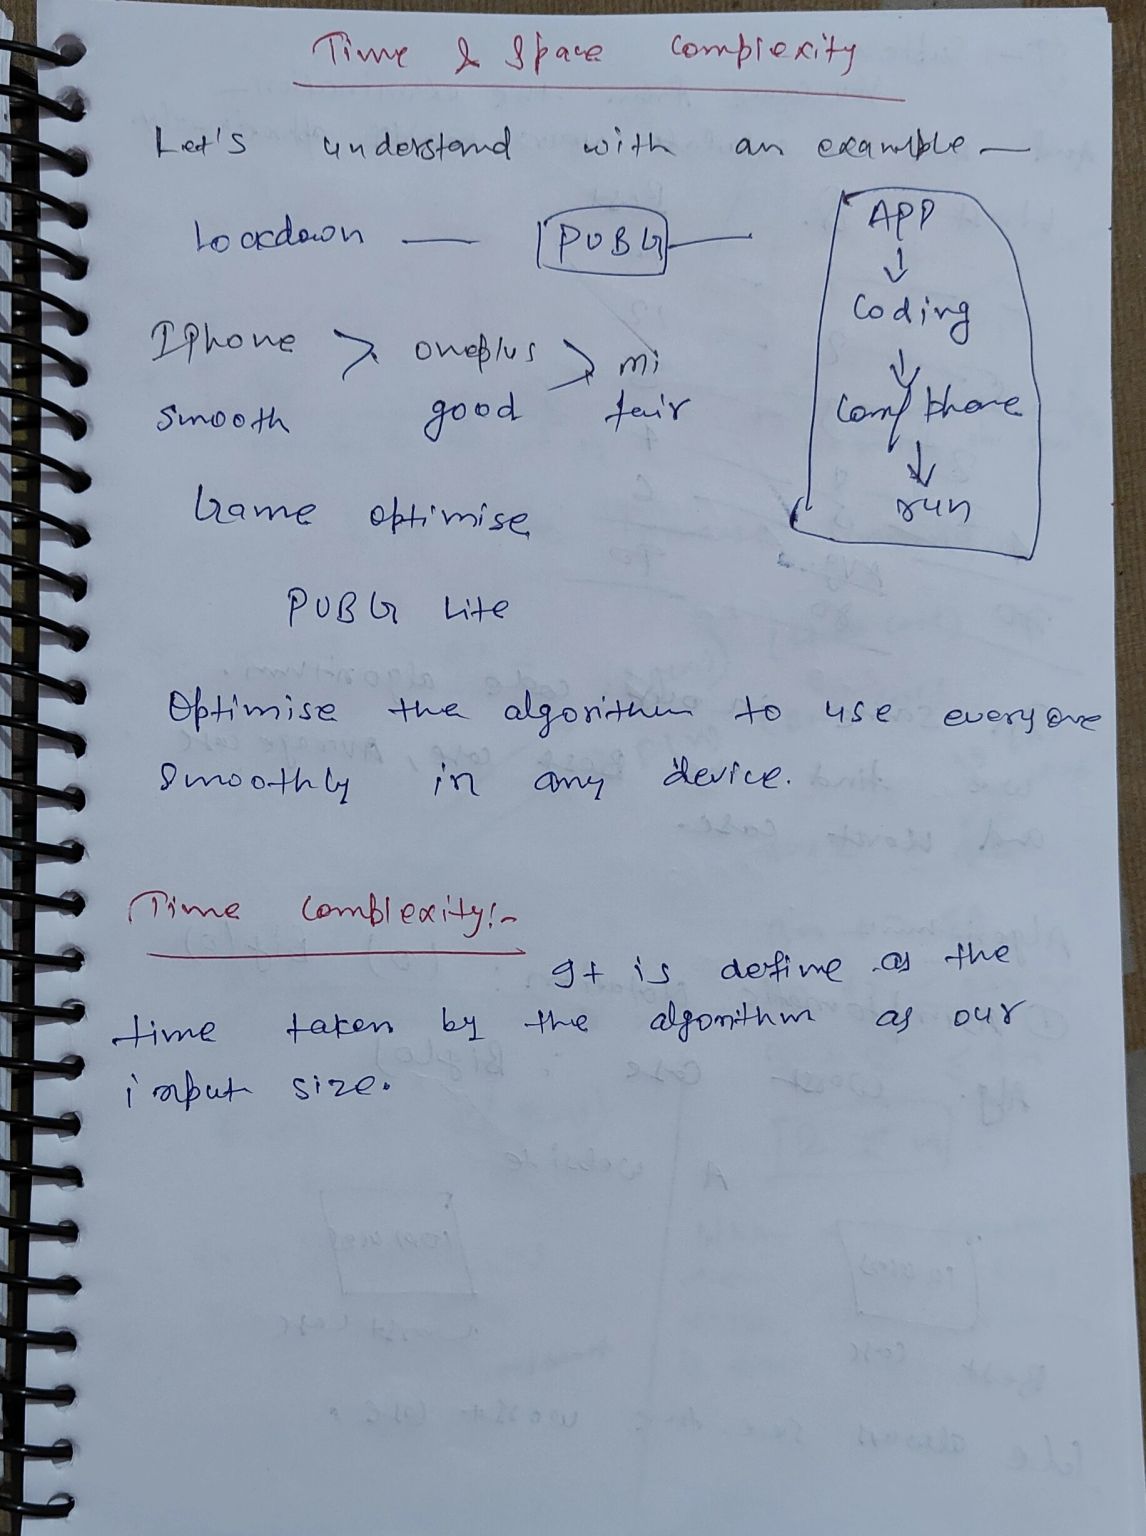 Time & Space Complexity
Let's understand with an example —
Lockdown — PUBG —
APP
↓
Coding
↓
Comp/phone
↓
run
IPhone > oneplus > mi
smooth good fair
Game optimise
PUBG Lite
Optimise the algorithm to use everyone
smoothly in any device.
Time Complexity:-
It is define as the
time taken by the algorithm as our
input size.